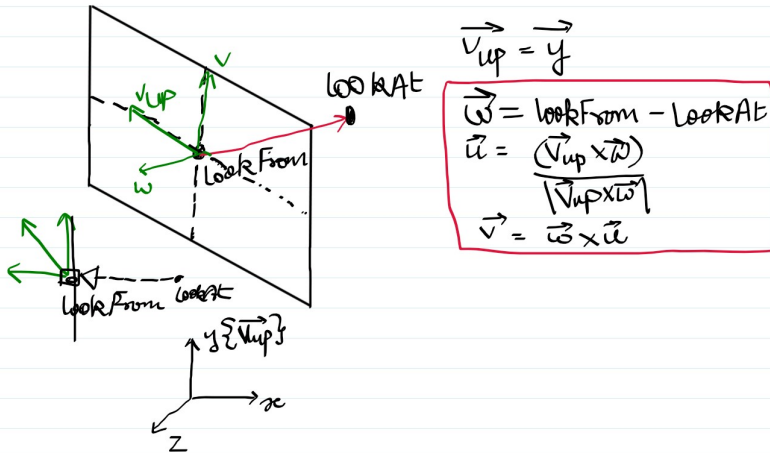 V
Vup
LOOKAt
LookFrom
w
LookFrom
LookAt
y{V⃗up}
x
Z
V⃗up = y⃗
w⃗ = lookFrom - LookAt
u⃗ = (V⃗up × w⃗)
|V⃗up × w⃗|
v⃗ = w⃗ × u⃗